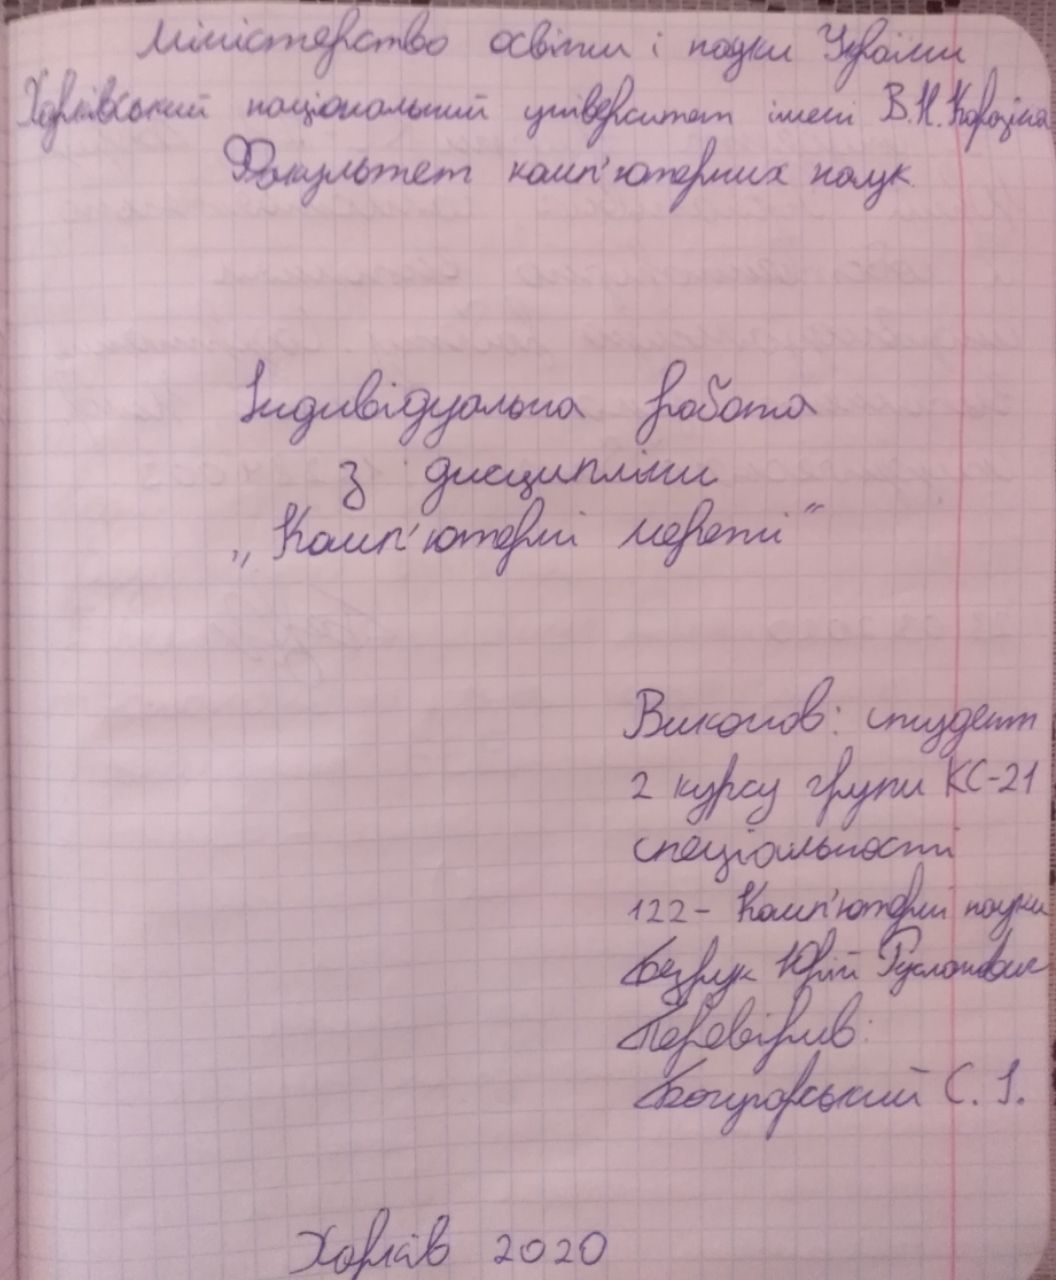 Міністерство освіти і науки України
Харківський національний університет імені В.Н.Каразіна
Факультет комп'ютерних наук
Індивідуальна робота
з дисципліни
„Комп'ютерні мережі"
Виконав: студент
2 курсу групи КС-21
спеціальності
122- Комп'ютерні науки
Безрук Юрій Русланович
Перевірив:
Богучарський С. І.
Харків 2020